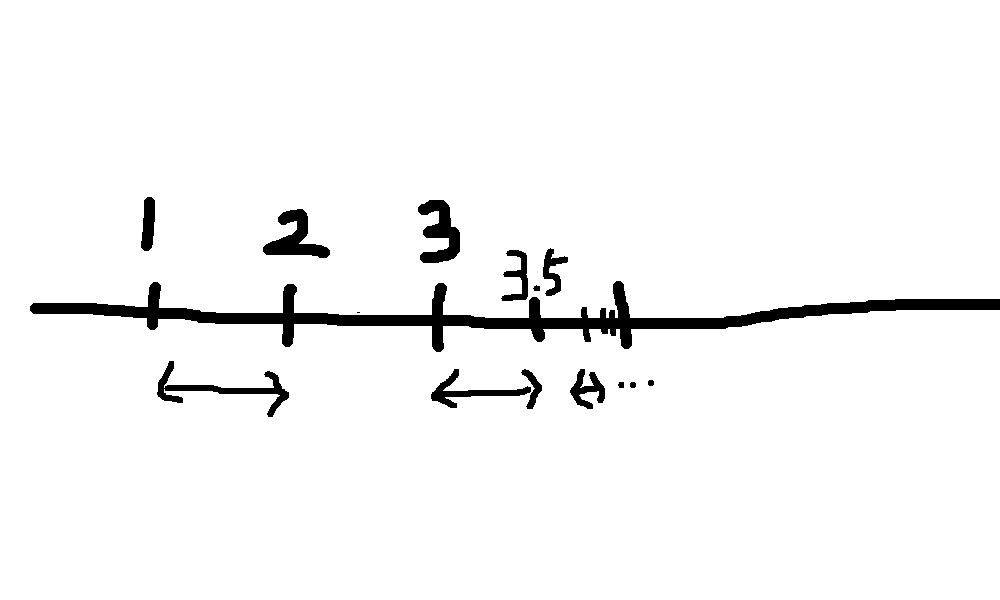 1 2 3 3.5
...